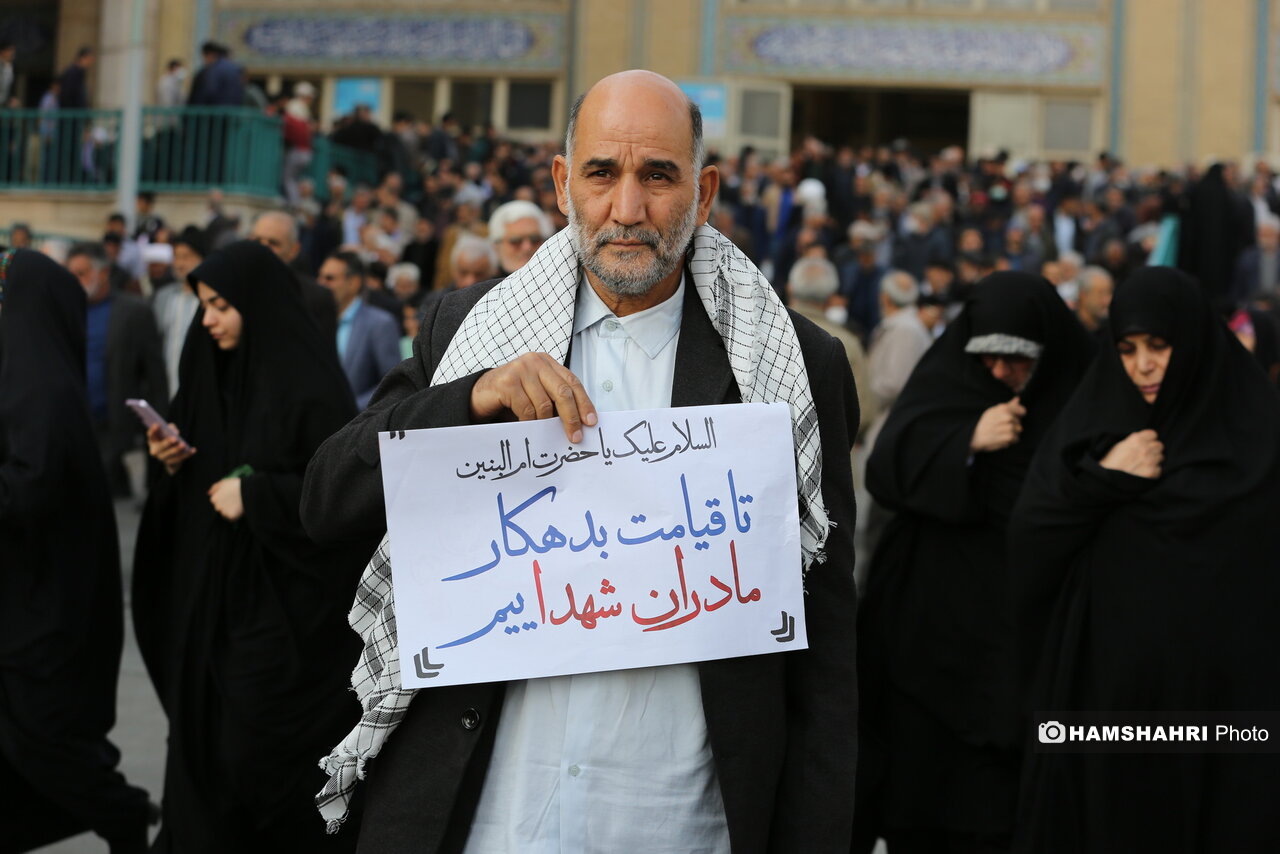 السلام علیک یا حضرت ام البنین
تا قیامت بدهکار
مادران شهداییم
HAMSHAHRI Photo